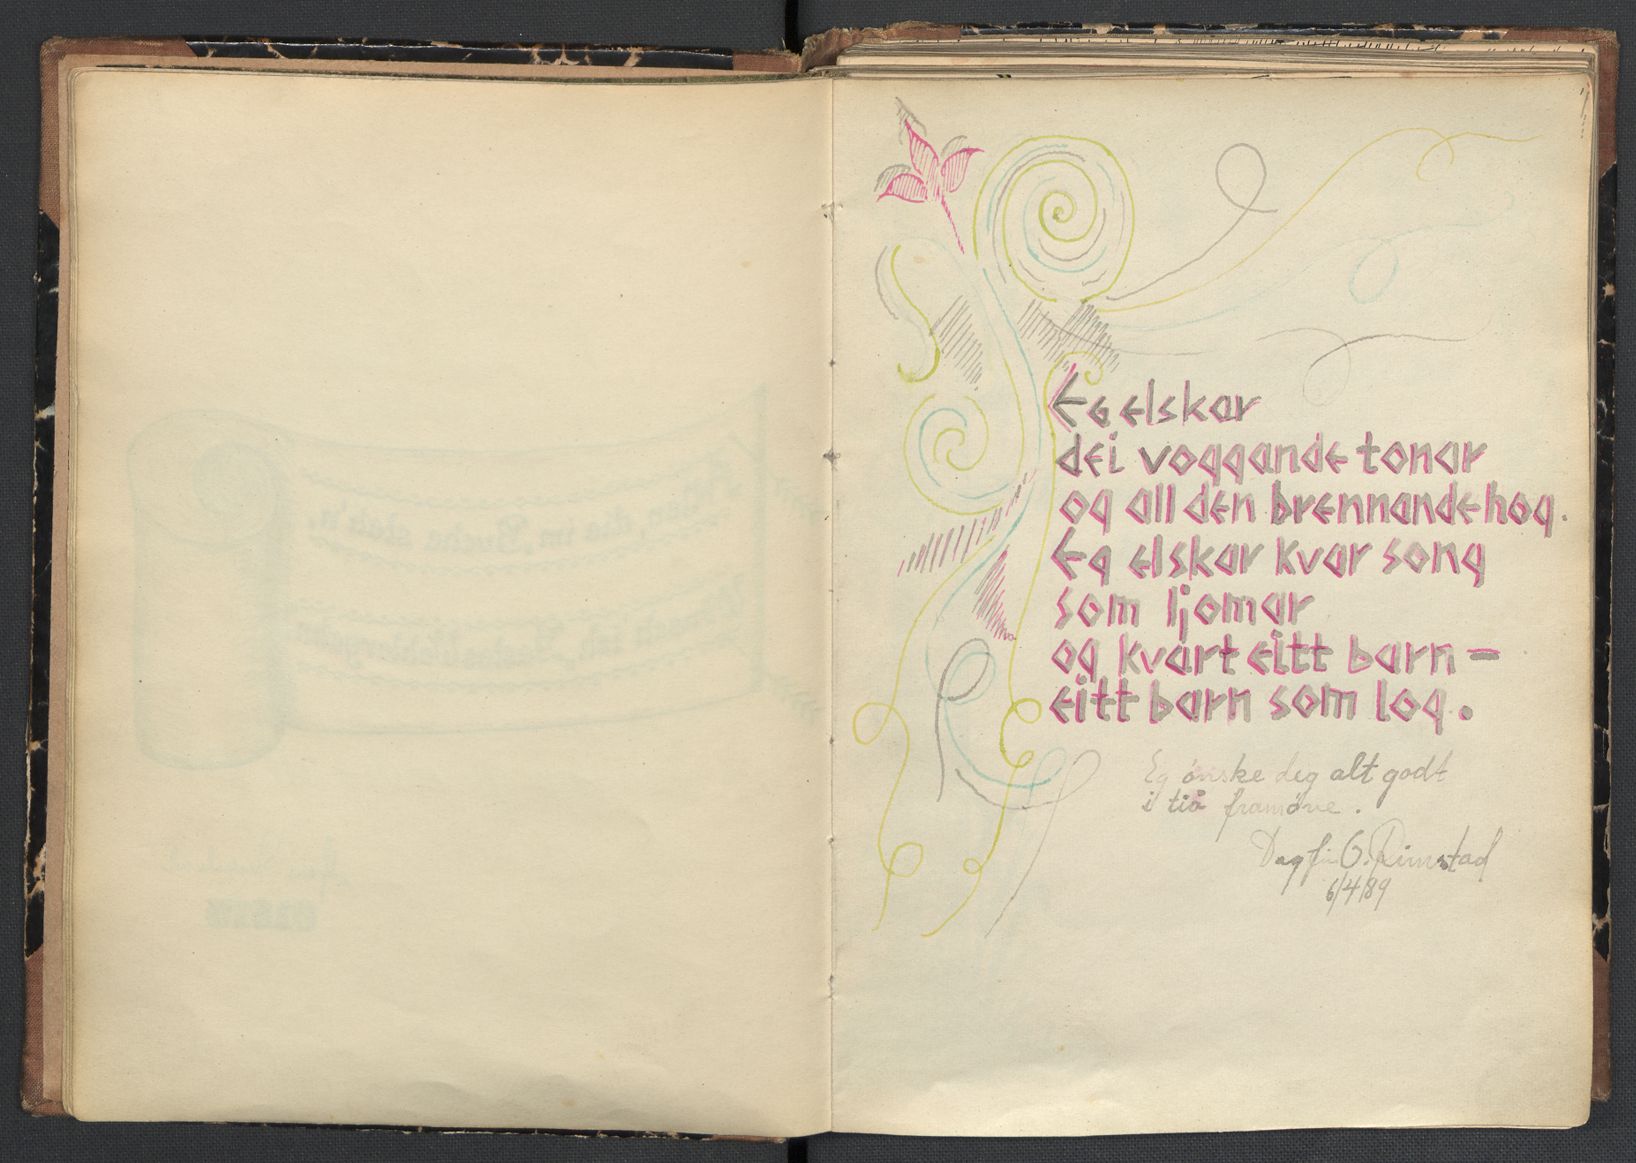 Eg elskar
dei voggande tonar
og all den brennande hog.
Eg elskar kvar song
som ljomar
og kvart eitt barn –
eitt barn som log.
Eg ønske deg alt godt
i tiå framøve.
Dagfin G. Rimstad
6/4/89